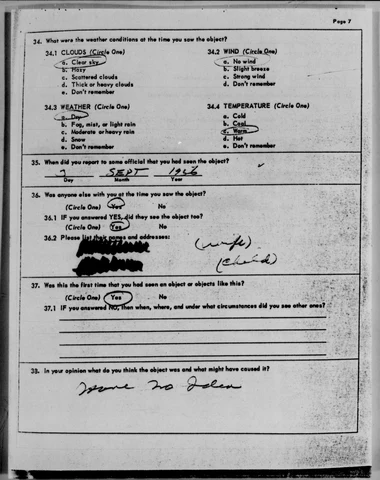 Page 7
34. What were the weather conditions at the time you saw the object?
34.1 CLOUDS (Circle One) 34.2 WIND (Circle One)
a. Clear sky a. No wind
b. Hazy b. Slight breeze
c. Scattered clouds c. Strong wind
d. Thick or heavy clouds d. Don't remember
e. Don't remember
34.3 WEATHER (Circle One) 34.4 TEMPERATURE (Circle One)
a. Dry a. Cold
b. Fog, mist, or light rain b. Cool
c. Moderate or heavy rain c. Warm
d. Snow d. Hot
e. Don't remember e. Don't remember
35. When did you report to some official that you had seen the object?
7 SEPT 1966
Day Month Year
36. Was anyone else with you at the time you saw the object?
(Circle One) Yes No
36.1 IF you answered YES, did they see the object too?
(Circle One) Yes No
36.2 Please list their names and addresses:
(wife)
(child)
37. Was this the first time that you had seen an object or objects like this?
(Circle One) Yes No
37.1 IF you answered NO, then when, where, and under what circumstances did you see other ones?
38. In your opinion what do you think the object was and what might have caused it?
Have No Idea